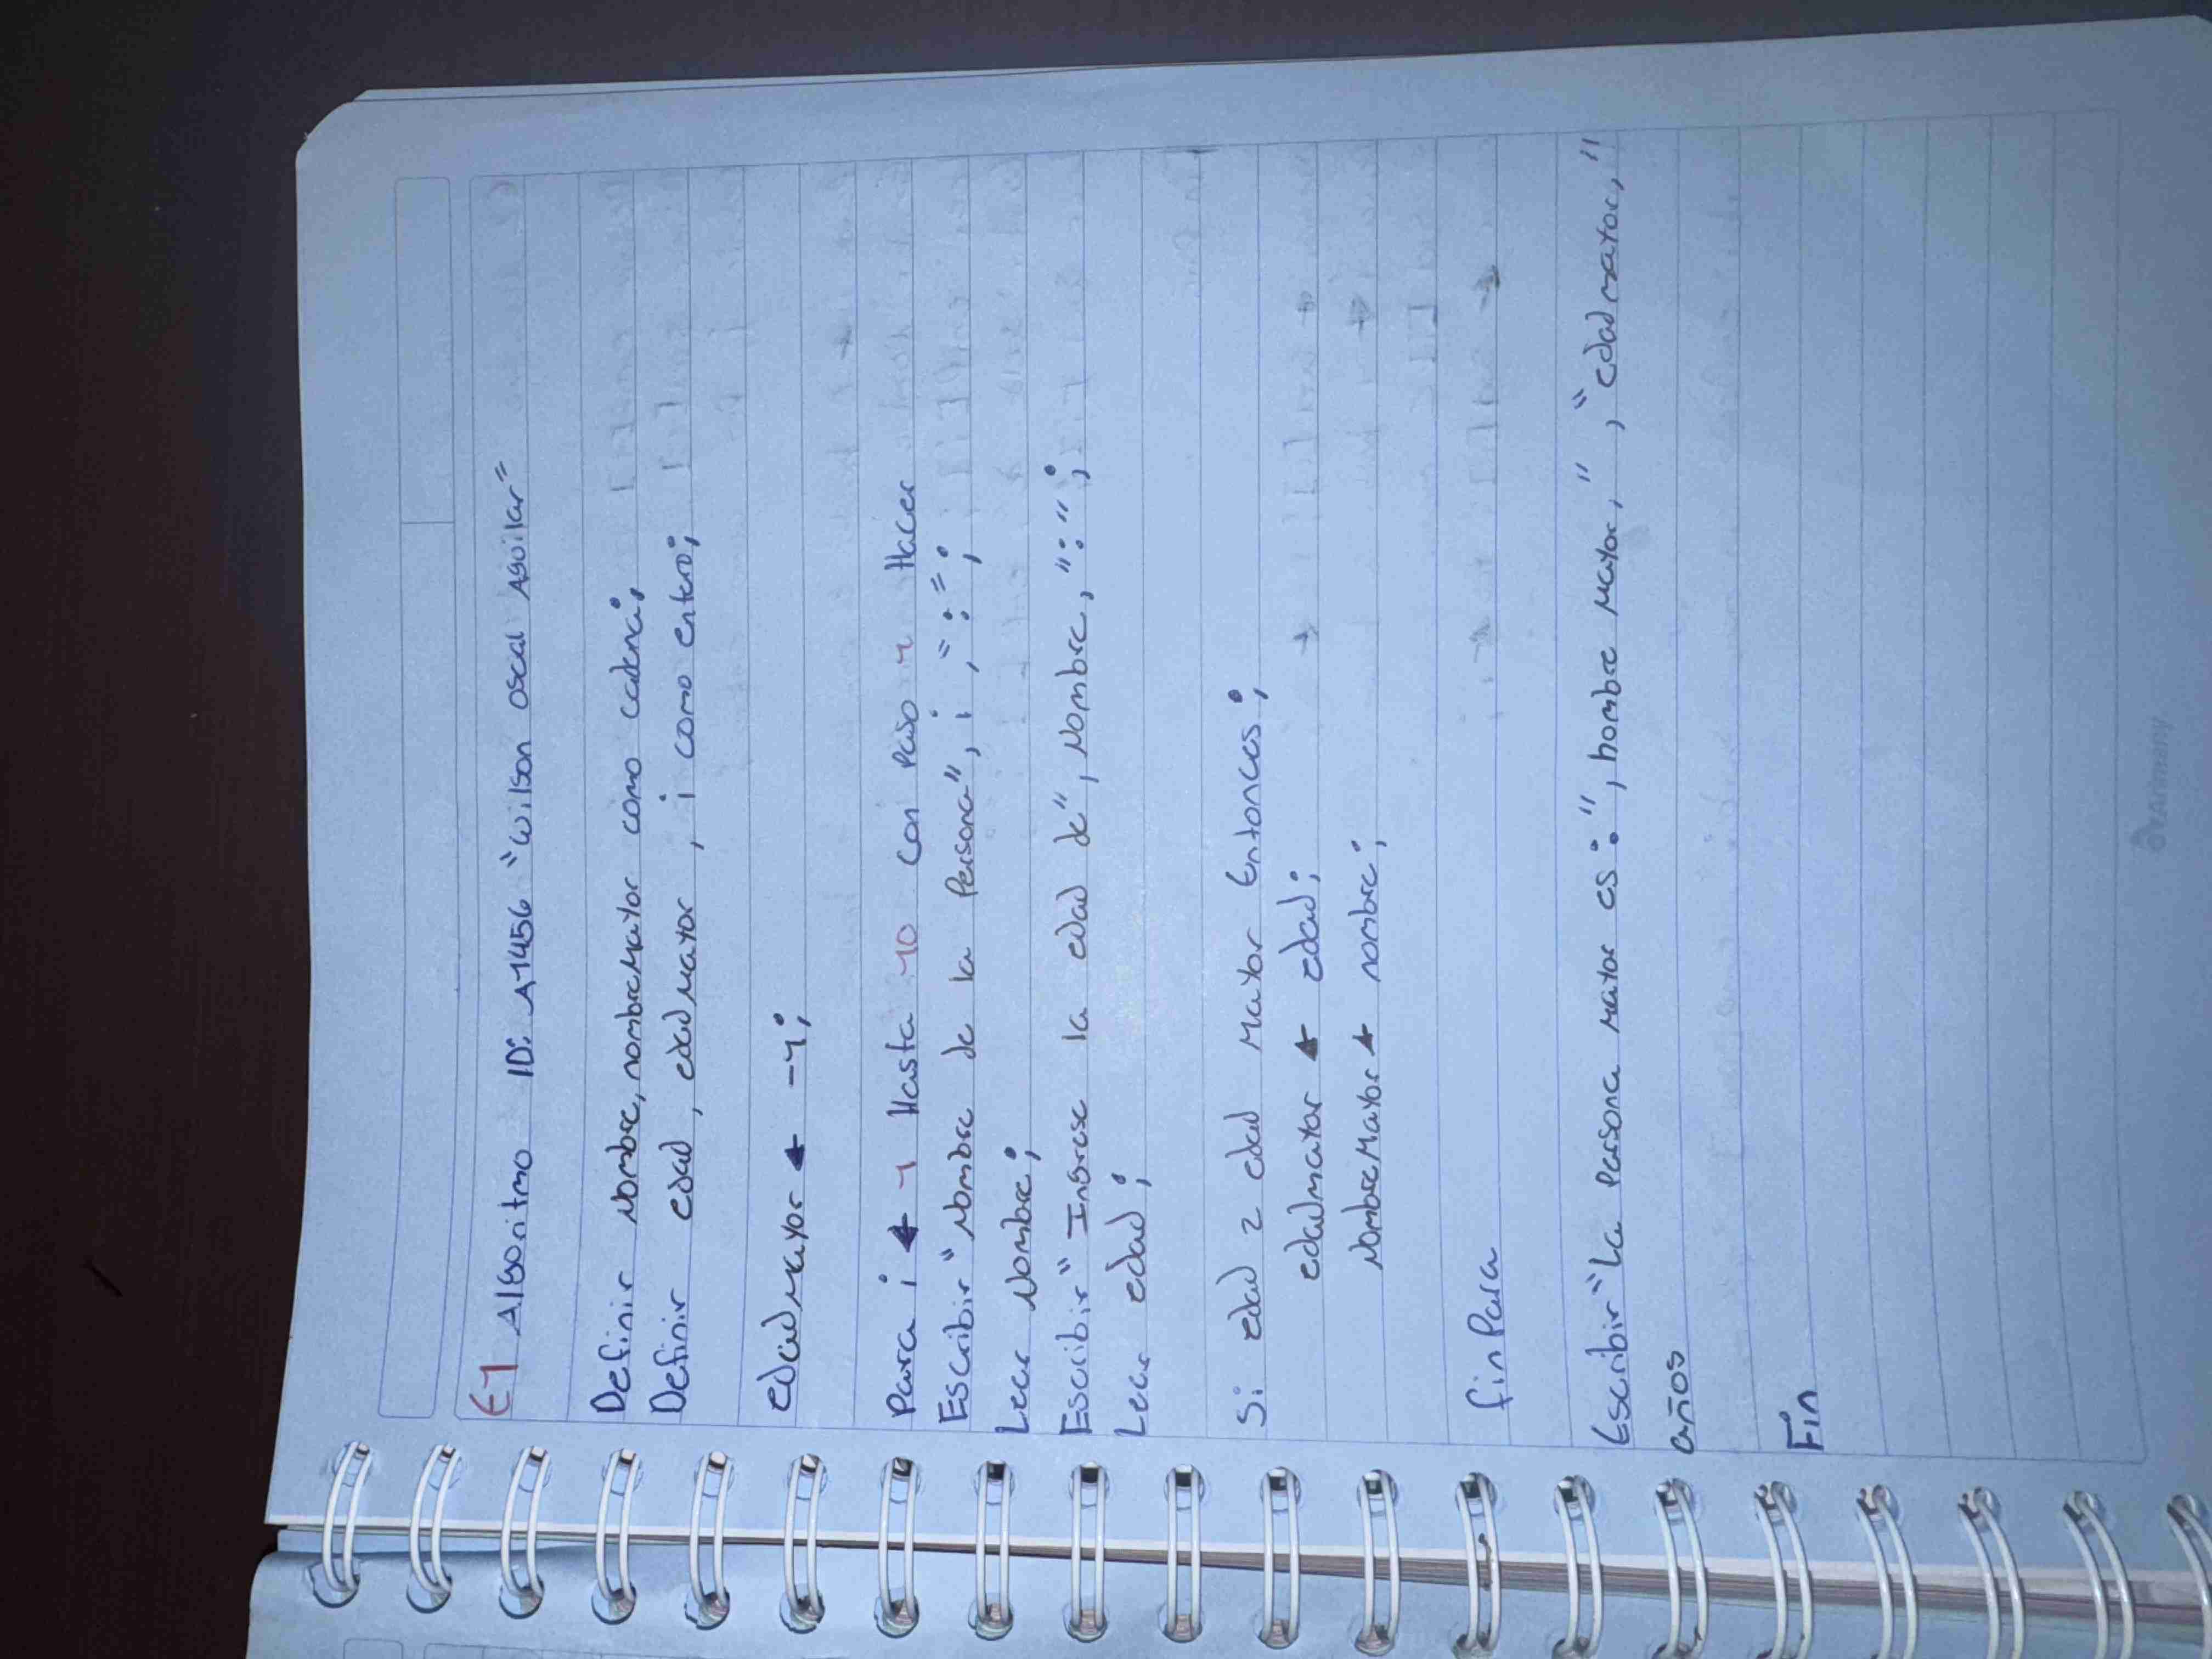 E1 Algoritmo ID: A1456 "Wilson oscal Aguilar"
Definir Nombre, nombreMayor como cadena;
Definir edad, edadMayor, i como entero;
edadMayor ← -1;
Para i ← 1 Hasta 10 Con Paso 1 Hacer
Escribir "Nombre de la Persona", i, ":";
Leer Nombre;
Escribir "Ingrese la edad de", Nombre, ":";
Leer edad;
Si edad z edad Mayor Entonces;
edadmayor ← edad;
NombreMayor ← nombre;
fin Para
Escribir "La Persona Mayor es:", hombre Mayor, ", "edad mayor,"
años
Fin